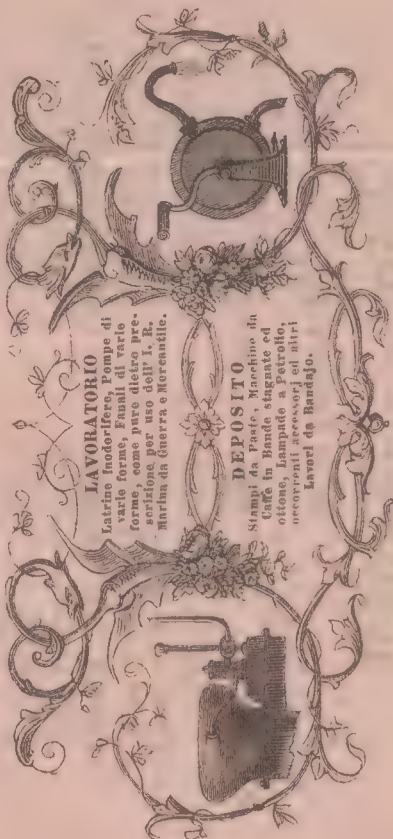 LAVORATORIO
Latrine Inodorifere, Pompe di
varie forme, Fanali di varie
forme, come pure dietro pre-
scrizione per uso dell' I. R.
Marina da Guerra e Mercantile.
DEPOSITO
Stampi da Paste, Macchine da
Caffe in Bande stagnate ed
ottone, Lampade a Petrolio,
occorrenti accessorj ed altri
Lavori da Bandajo.